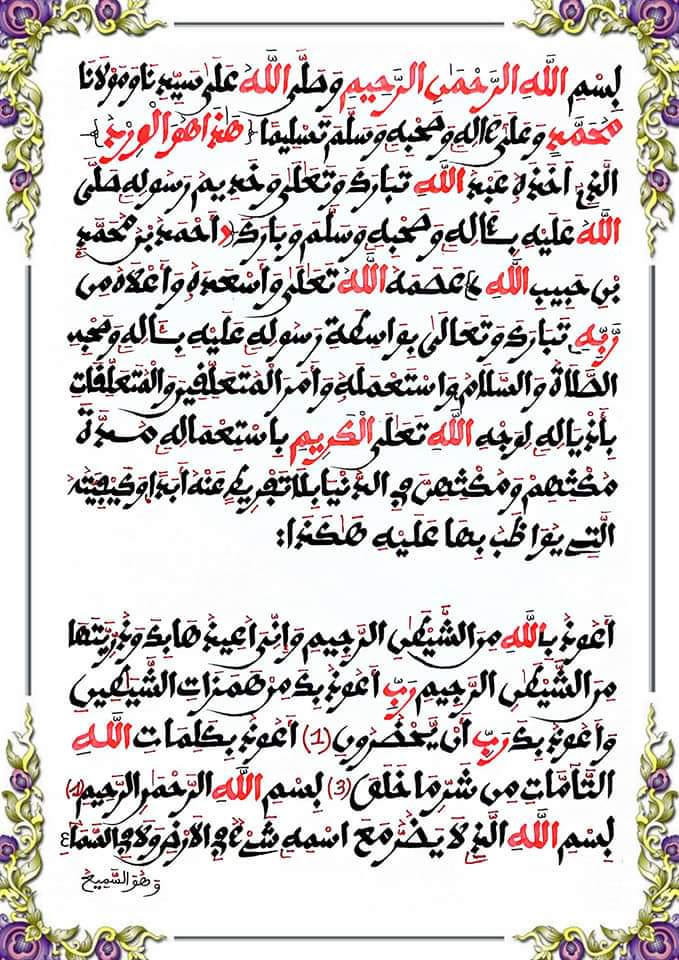 بِسْمِ اللَّهِ الرَّحْمَٰنِ الرَّحِيمِ وَصَلَّى اللَّهُ عَلَى سَيِّدِنَا وَمَوْلَانَا
مُحَمَّدٍ وَعَلَى ءَالِهِ وَصَحْبِهِ وَسَلَّمَ تَسْلِيمًا {هَٰذَا هُوَ الْوِرْدُ}
الَّذِي أَخَذَهُ عَبْدُ اللَّهِ تَبَارَكَ وَتَعَلَى وَخَدِيمُ رَسُولِهِ صَلَّى
اللَّهُ عَلَيْهِ بِئَالِهِ وَصَحْبِهِ وَسَلَّمَ وَبَارَكَ (أَحْمَدُ بْنُ مُحَمَّدِ
بْنِ حَبِيبِ اللَّهِ) عَصَمَهُ اللَّهُ تَعَلَى وَأَسْعَدَهُ وَأَعْلَاهُ مِن
رَّبِّهِ تَبَارَكَ وَتَعَالَى بِوَاسِطَةِ رَسُولِهِ عَلَيْهِ بِئَالِهِ وَصَحْبِهِ
الصَّلَاةُ وَالسَّلَامُ وَاسْتَعْمَلَهُ وَأَمَرَ الْمُتَعَلِّقِينَ وَالْمُتَعَلِّقَاتِ
بِأَذْيَالِهِ لِوَجْهِ اللَّهِ تَعَلَى الْكَرِيمِ بِاسْتِعْمَالِهِ مُدَّةَ
مُكْثِهِمْ وَمُكْثِهِنَّ فِي الدُّنْيَا بِلَا تَفْرِيطٍ عَنْهُ أَبَدًا وَكَيْفِيَّتُهُ
الَّتِي يُوَاظَبُ بِهَا عَلَيْهِ هَٰكَذَا:
أَعُوذُ بِاللَّهِ مِنَ الشَّيْطَٰنِ الرَّجِيمِ وَإِنِّي أُعِيذُهَا بِكَ وَذُرِّيَّتَهَا
مِنَ الشَّيْطَٰنِ الرَّجِيمِ رَبِّ أَعُوذُ بِكَ مِنْ هَمَزَاتِ الشَّيَٰطِينِ
وَأَعُوذُ بِكَ رَبِّ أَنْ يَّحْضُرُونِ (1) أَعُوذُ بِكَلِمَاتِ اللَّهِ
التَّآمَّاتِ مِن شَرِّ مَا خَلَقَ (3) بِسْمِ اللَّهِ الرَّحْمَٰنِ الرَّحِيمِ (1)
بِسْمِ اللَّهِ الَّذِي لَا يَضُرُّ مَعَ اسْمِهِ شَيْءٌ فِي الْأَرْضِ وَلَا فِي السَّمَآءِ
وَهُوَ السَّمِيعُ